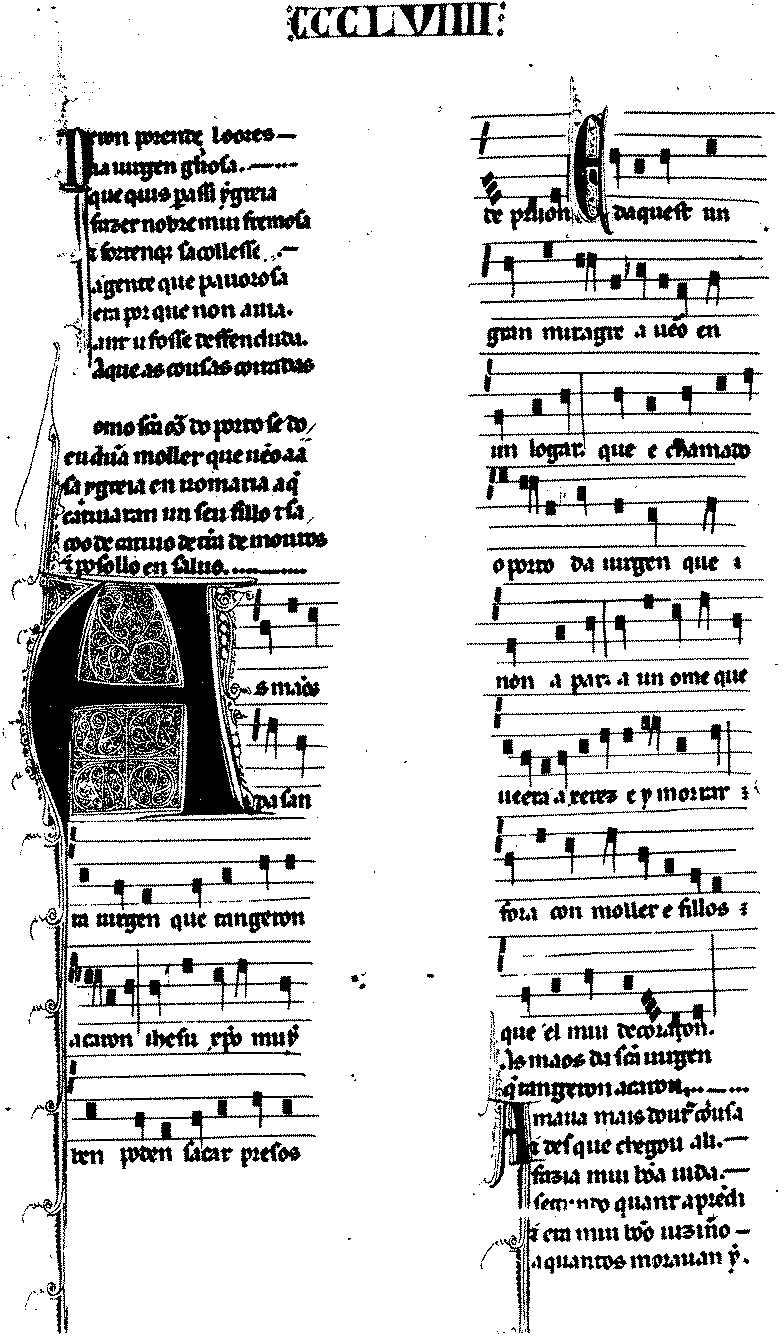 CCCLVIIII
eron porende loores
aa uirgen gl'iosa.
que quis passi ygreia
fazer nobre mui fremosa
sacollesse
a gente que pauorosa
era por que non auia.
ant u fosse deffenduda.
Aqueas cousas coutadas
omo sc̃a do porto se do
eu dũa moller que uẽo aa
sa ygreia en uomaria a q̃
catiuaran un seu fillo τ sa
coo de catiuo de tr̃a de mouros
τ posollo en saluo.
As maos
da san
ta uirgen que tangeron
acaron ihesu xp̃o muy
ben poden sacar presos
de prijon E daquest un
gran miragre a uẽo en
un logar. que e chamado
o porto da uirgen que e
non a par. a un ome que
ueera a xerez e y morar
fora con moller e fillos
que el mui decoraçon.
As maos da sc̃a uirgen
q̃ tangeron acaron,
Amaua mais doutr̃ cousa
e des que chegou ali.
fazia mui bõa uida.
segundo quant aprẽdi
e era mui bõo uiziño
a quantos morauan y.